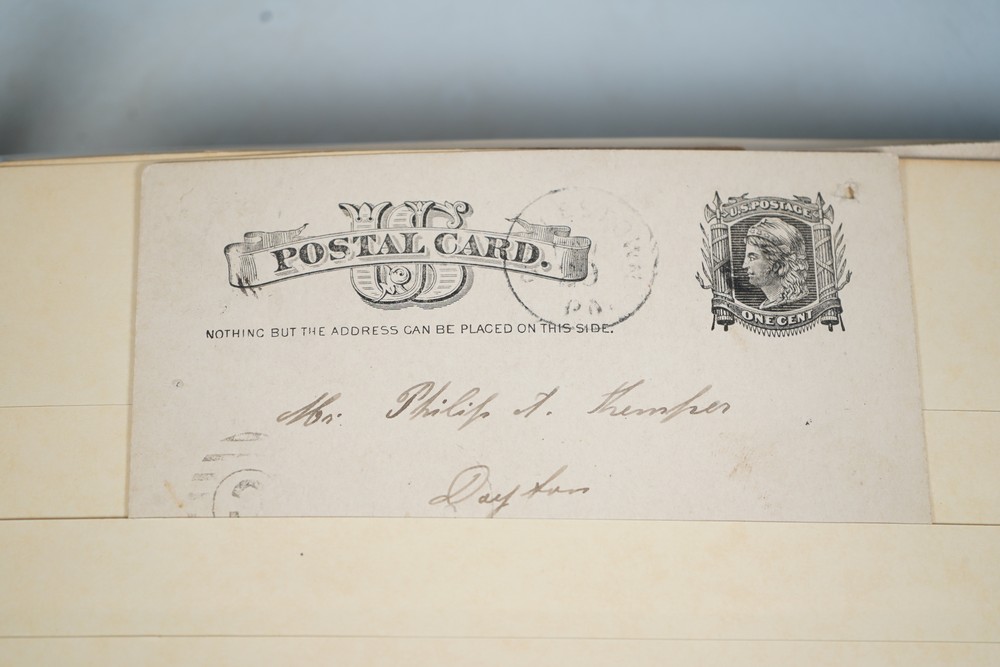 US
POSTAL CARD.
NOTHING BUT THE ADDRESS CAN BE PLACED ON THIS SIDE.
PA.
U.S. POSTAGE
ONE CENT
Mr. Philip A. Kemper
Dayton